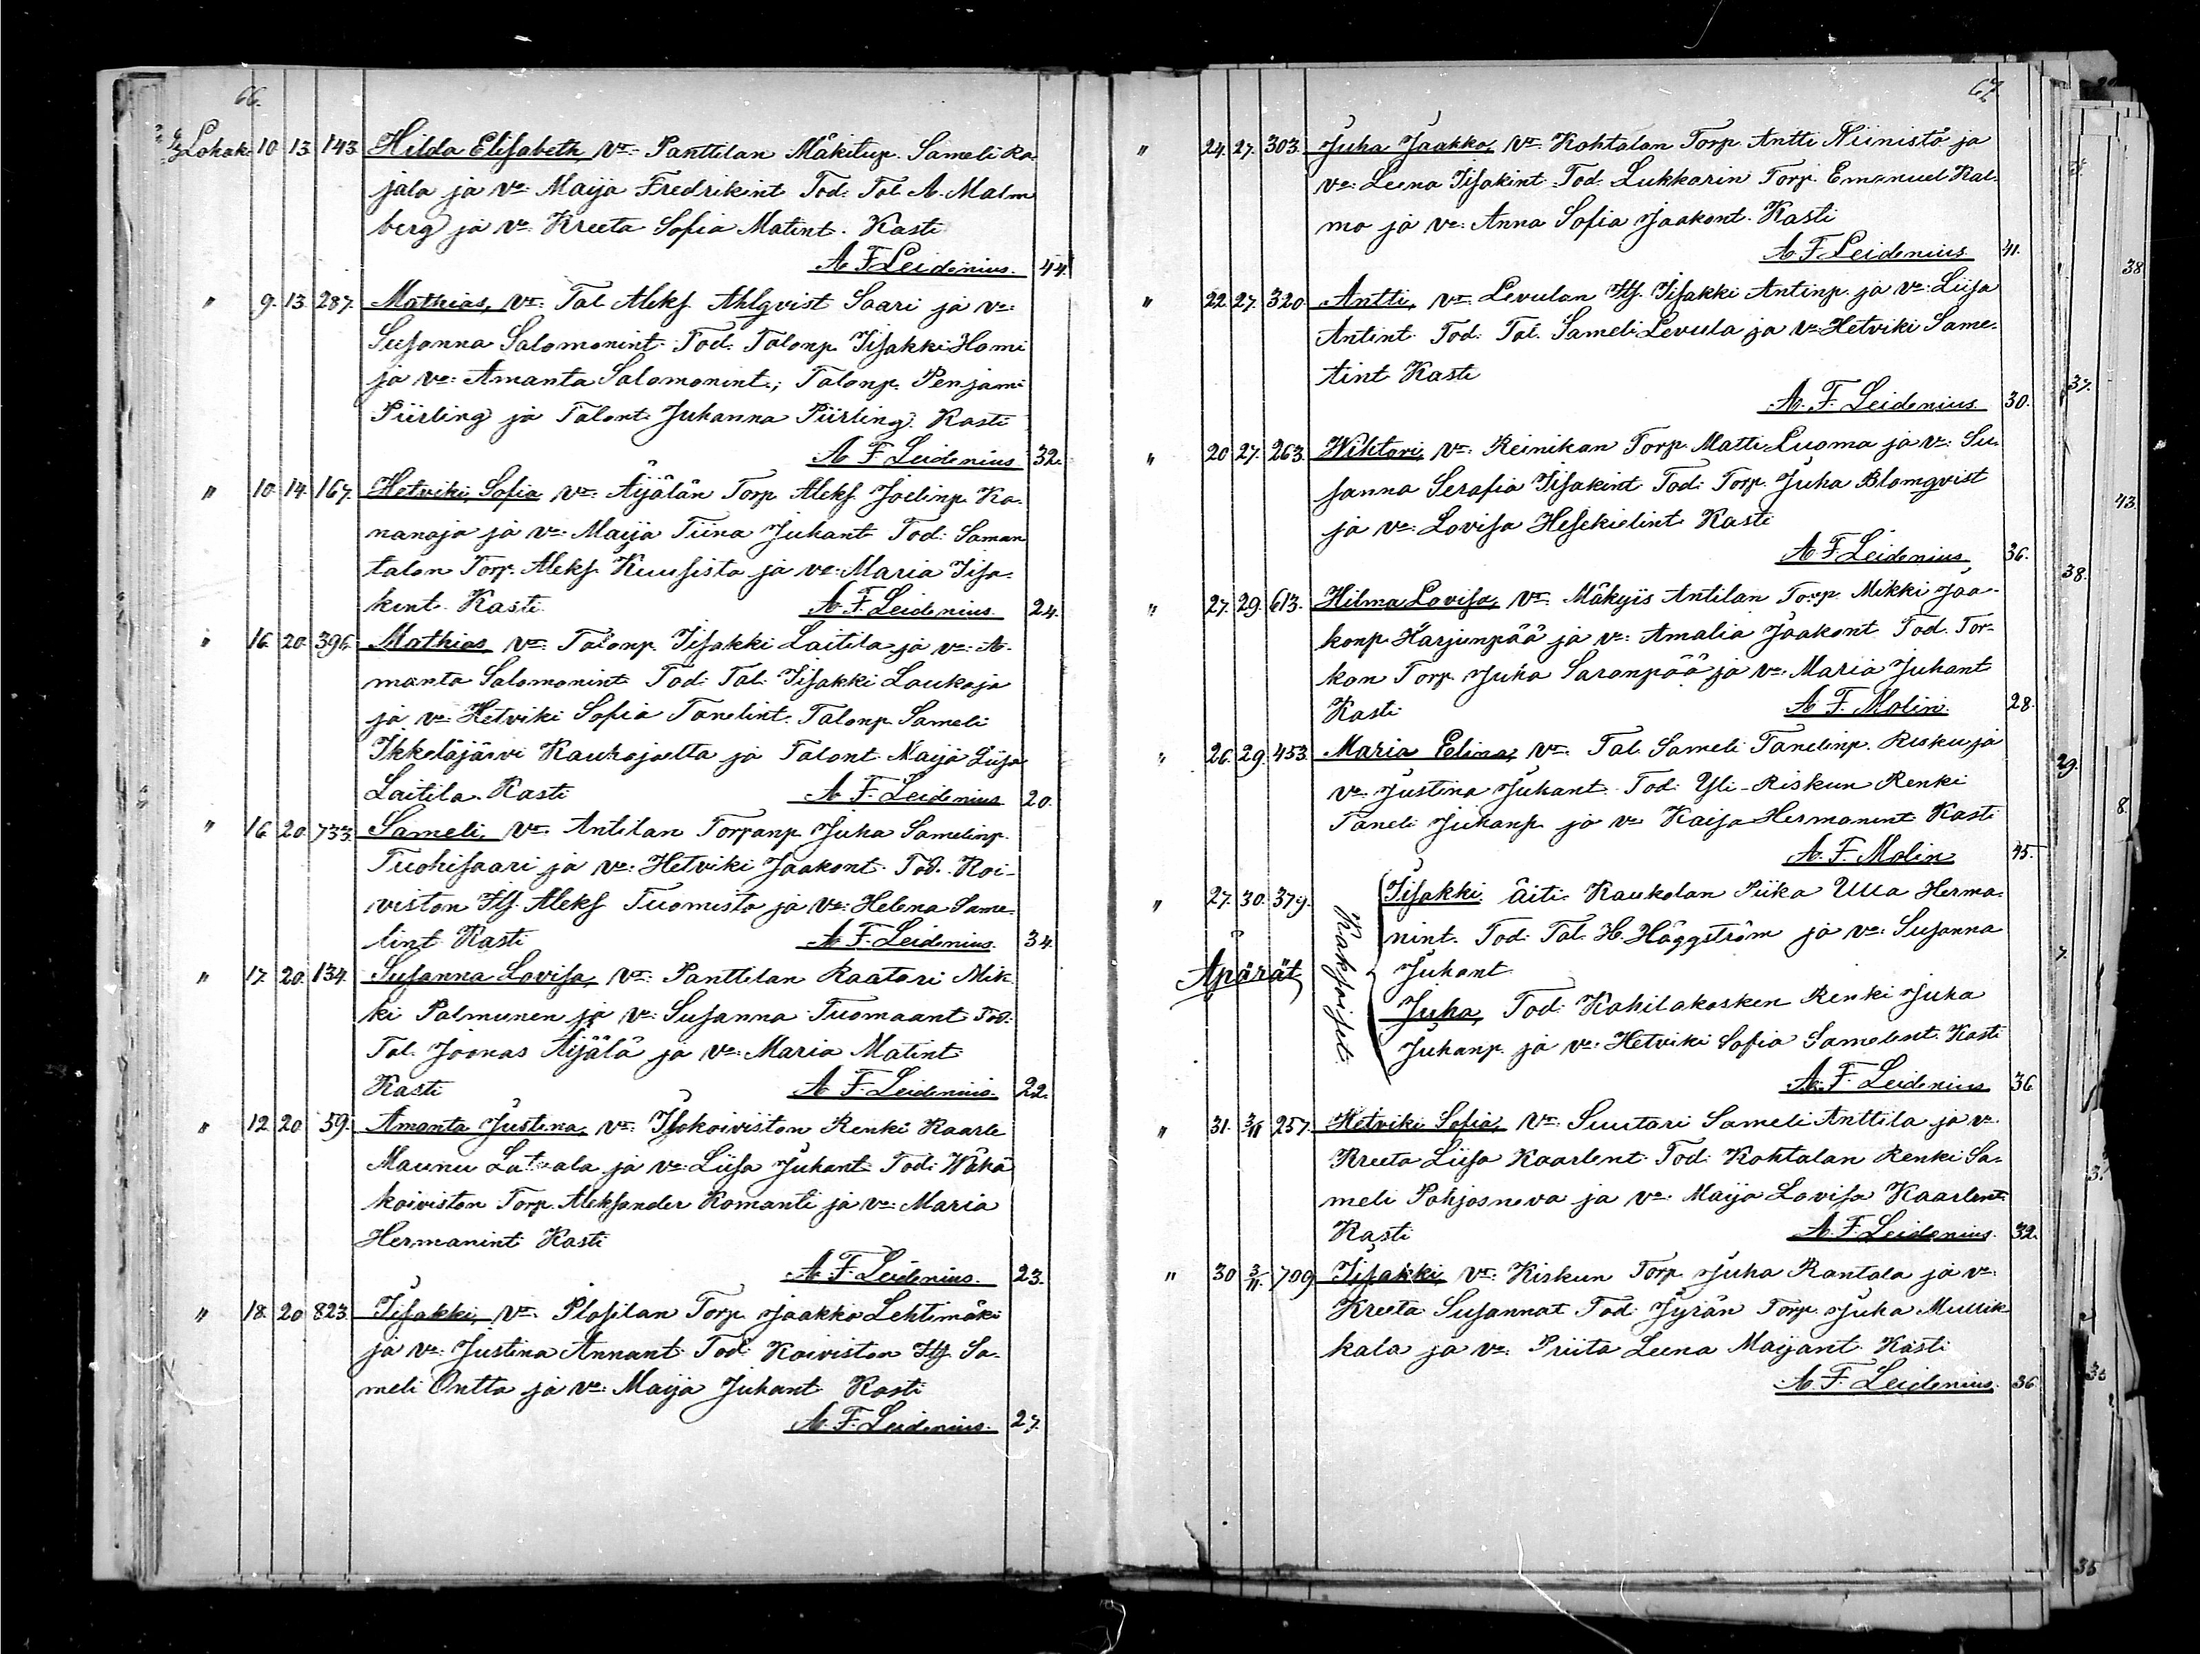 66.
Lokak. 10. 13. 143. Hilda Elisabeth, vt: Panttilan Mäkitup. Sameli Ra-
jala ja vo: Maija Fredrikint. Tod: Tal. A. Malm
berg ja vo: Kreeta Sofia Matint. Kasti
A. F. Leidenius. 44.
" 9. 13. 287. Mathias, vt: Tal. Aleks. Ahlqvist Saari ja vo:
Susanna Salomonint. Tod: Talonp. Iisakki Homi
ja vo: Amanta Salomonint.; Talonp. Penjami
Piirling ja Talont. Juhanna Piirling. Kasti
A. F. Leidenius 32.
" 10. 14. 167. Hetviki Sofia vt: Äijälän Torp. Aleks. Joelinp. Ka-
nanaja ja vo: Maija Tiina Juhant. Tod: Saman
talon Torp. Aleks. Kuusisto ja vo: Maria Iisa-
kint. Kasti A. F. Leidenius. 24.
" 16. 20. 396. Mathias, vt: Talonp. Iisakki Laitila ja vo: A-
manta Salomonint. Tod: Tal. Iisakki Laukaja
ja vo: Hetviki Sofia Tanelint. Talonp. Sameli
Ikkeläjärvi Kauhajoelta ja Talont. Maija Liisa
Laitila. Kasti A. F. Leidenius 20.
" 16. 20. 733. Sameli, vt: Antilan Torpanp. Juha Samelinp.
Tuohisaari ja vo: Hetviki Jaakont. Tod: Koi-
viston Its. Aleks. Tuomisto ja vo: Helena Same-
lint. Kasti A. F. Leidenius. 34.
" 17. 20. 134. Susanna Lovisa, vt: Panttilan Raatari Mik-
ki Palmunen ja vo: Susanna Tuomaant. Tod:
Tal. Joonas Äijälä ja vo: Maria Matint.
Kasti A. F. Leidenius. 22.
" 12. 20. 59. Amanta Justina, vt: Isokoiviston Renki Kaarle
Maunu Latvala ja vo: Liisa Juhant. Tod: Wähä
koiviston Torp. Aleksander Komanti ja vo: Maria
Hermanint. Kasti
A. F. Leidenius. 23.
" 18. 20. 823. Iisakki, vt: Plosilan Torp. Jaakko Lehtimäki
ja vo: Justina Annant. Tod: Koiviston Its. Sa-
meli Ontto ja vo: Maija Juhant. Kasti
A. F. Leidenius. 27.
67.
" 24. 27. 303. Juha Jaakko, vt: Kohtalan Torp. Antti Niinistö ja
vo: Leena Iisakint. Tod: Lukkarin Torp. Emanuel Kal-
mo ja vo: Anna Sofia Jaakont. Kasti
A. F. Leidenius. 41.
" 22. 27. 320. Antti, vt: Levulan Its. Iisakki Antinp. ja vo: Liisa
Antint. Tod: Tal. Sameli Levula ja vo: Hetviki Same-
lint. Kasti
A. F. Leidenius. 30.
" 20. 27. 263. Wihtori, vt: Reinikan Torp. Matti Luoma ja vo: Su-
sanna Serafia Iisakint. Tod: Torp. Juha Blomqvist
ja vo: Lovisa Hesekielint. Kasti
A. F. Leidenius. 36.
" 27. 29. 613. Hilma Lovisa, vt: Mäkyis Antilan Torp. Mikki Jaa-
konp. Harjunpää ja vo: Amalia Jaakont. Tod. Tor-
kon Torp. Juha Saranpää ja vo: Maria Juhant.
Kasti A. F. Molin. 28.
" 26. 29. 453. Maria Elina, vt: Tal. Sameli Tanelinp. Risku ja
vo: Justina Juhant. Tod: Yli-Riskun Renki
Taneli Juhanp. ja vo: Kaisa Hermanint. Kasti
A. F. Molin 45.
" 27. 30. 379. Iisakki. äiti: Kaukolan Piika Ulla Herma-
nint. Tod: Tal. H. Häggström ja vo: Susanna
Apärät Juhant.
Kaksoiset.
Juha, Tod: Kahilakosken Renki Juha
Juhanp. ja vo: Hetviki Sofia Samelint. Kasti
A. F. Leidenius 36.
" 31. 3/11 257. Hetviki Sofia, vt: Suutari Sameli Anttila ja vo:
Kreeta Liisa Kaarlent. Tod: Kohtalan Renki Sa-
meli Pohjosneva ja vo: Maija Lovisa Kaarlent.
Kasti A. F. Leidenius. 32.
" 30 3/11 709 Iisakki, vt: Kiskun Torp. Juha Rantala ja vo:
Kreeta Susannat. Tod: Jyrän Torp. Juha Mullik-
kala ja vo: Priita Leena Maijant. Kasti
A. F. Leidenius. 36.